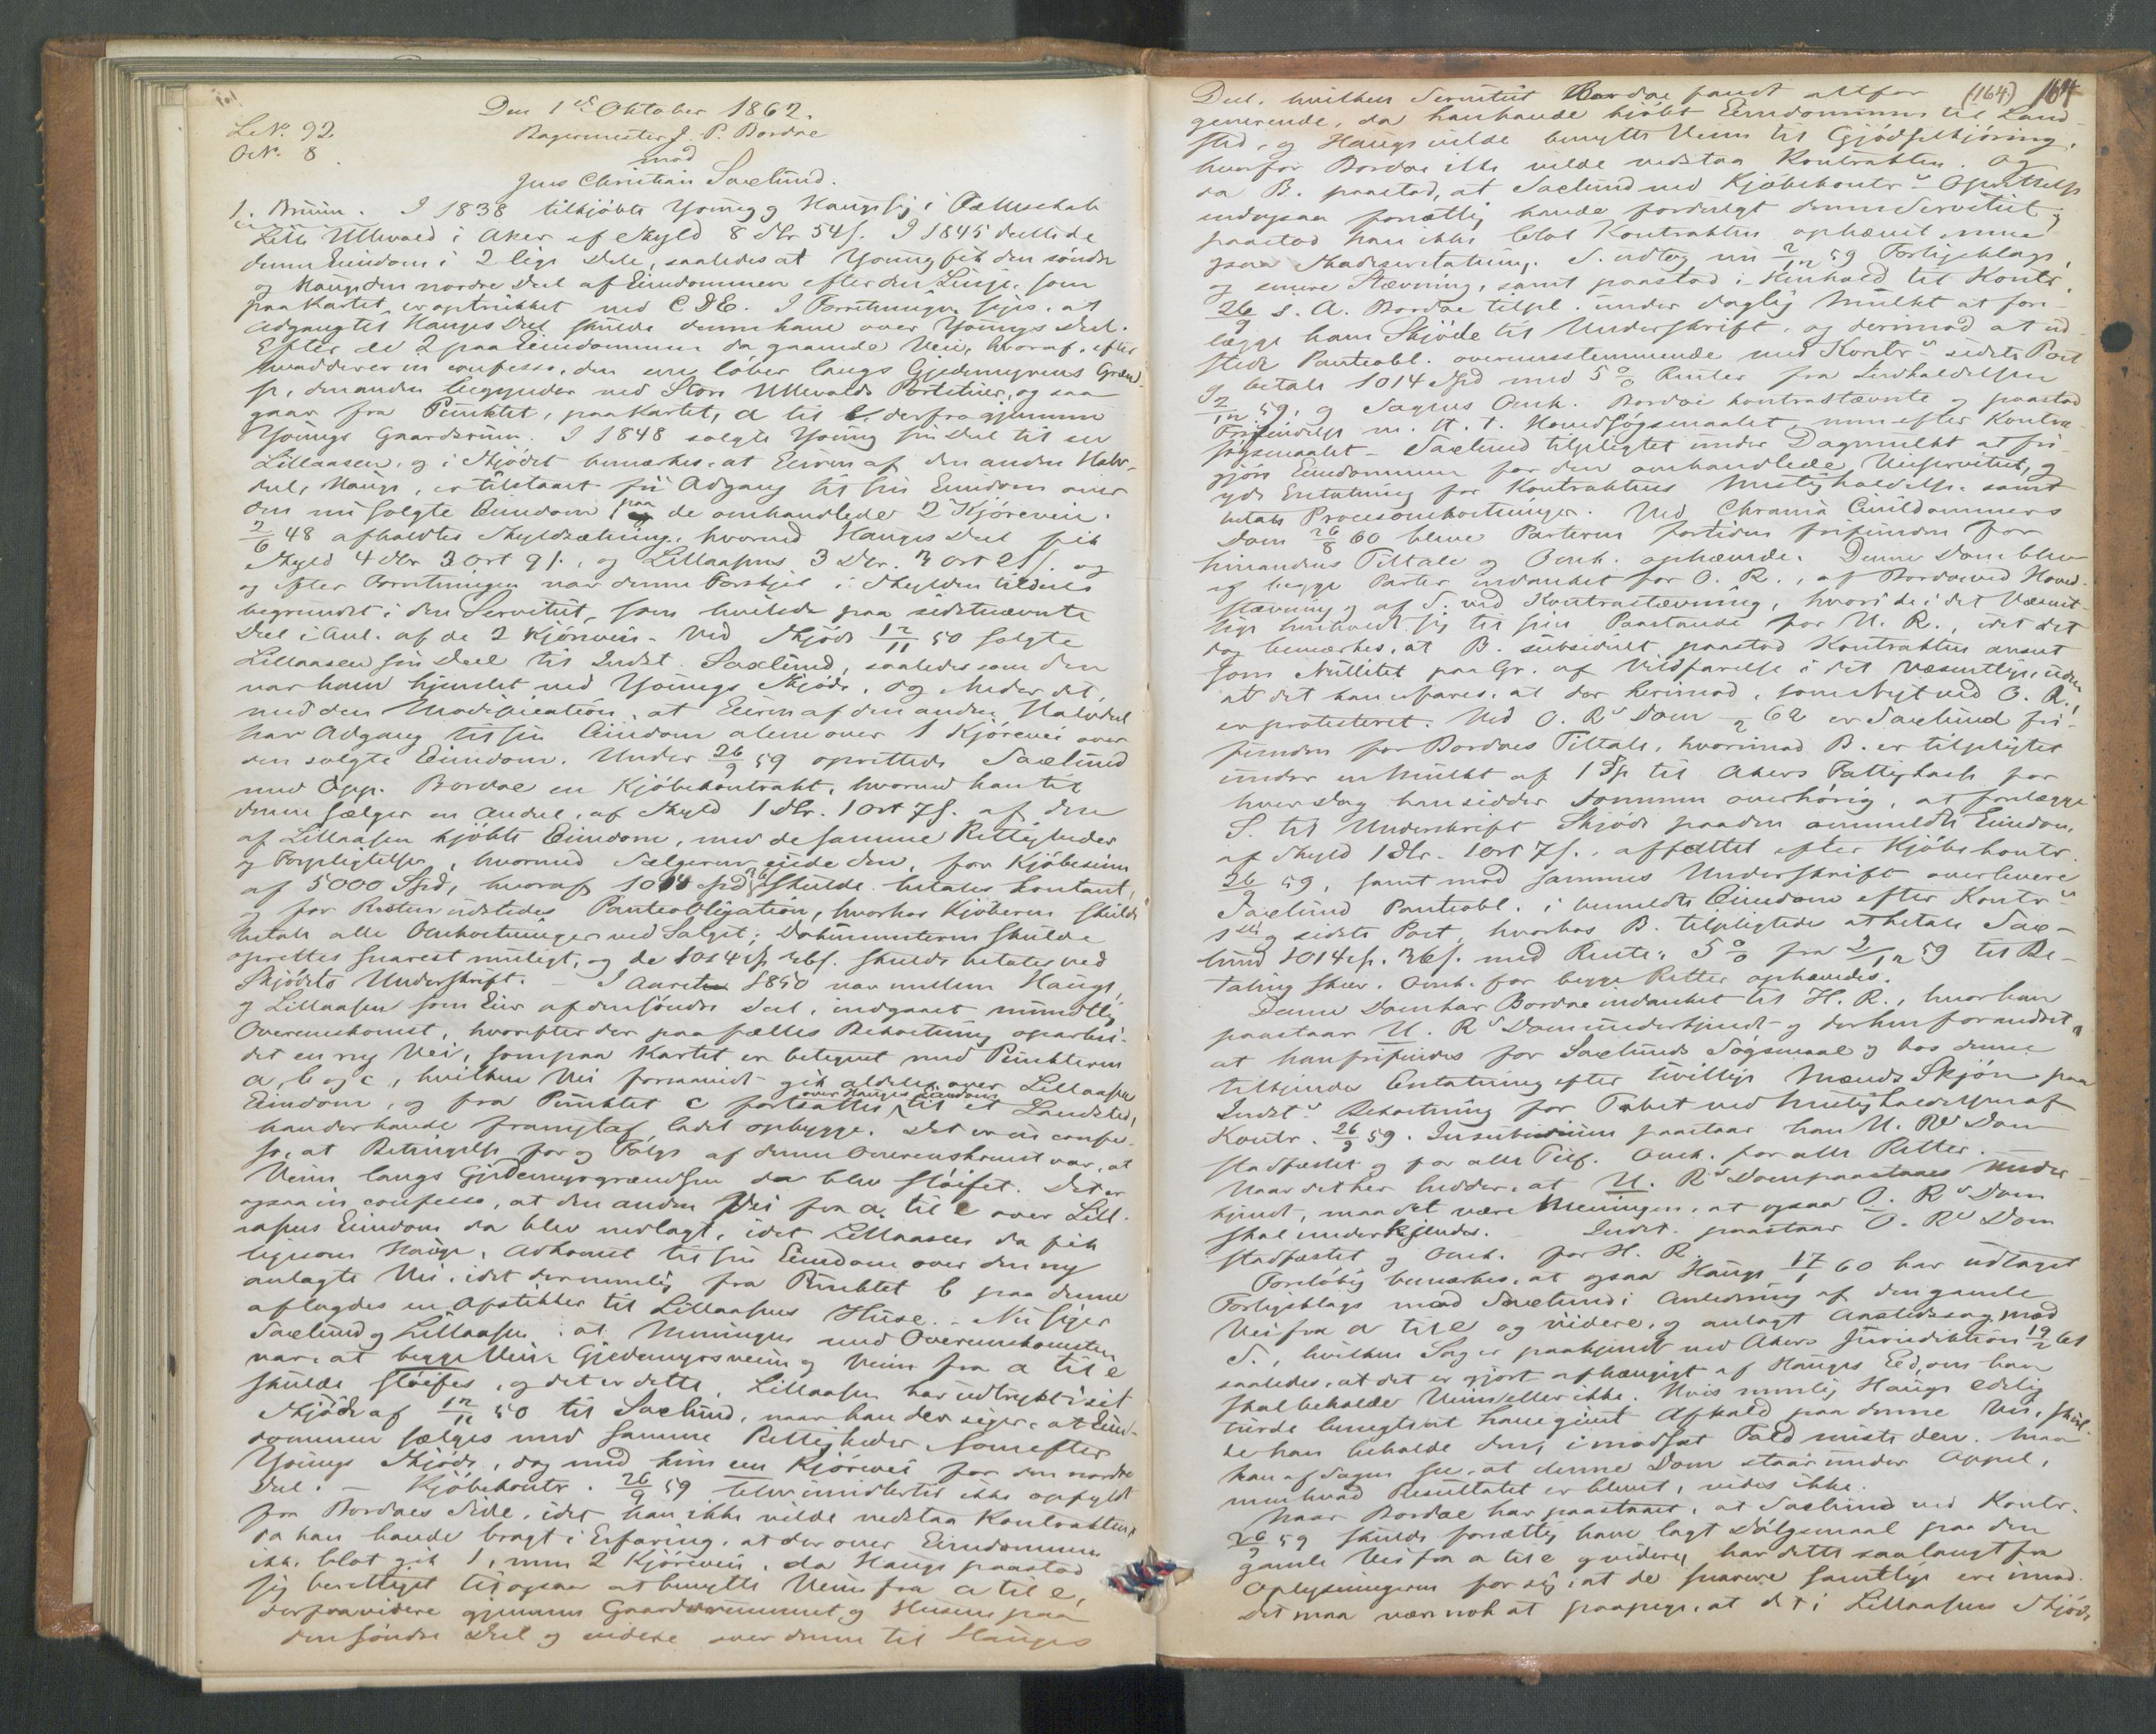 Den 1ste Oktober 1862.
L.No. 92
O.No. 8
Bagermester J. P. Bordoe
mod
Jens Christian Saxlund.
1. Bruun. I 1838 tilkjöbte Young og Hauge sig i Fællesskab
Lille Ullevold i Aker af Skyld 8 Dlr 54 s. I 1845 deeltes de
denne Eiendom i 2 lige Dele, saaledes at Young fik den söndre
og Hauge den nordre Deel af Eiendommen efter den Linje, som
paa Kartet er optrukket med C D E. I Forretningen siges, at
Adgang til Hauges Deel skulde denne have over Youngs Deel.
Efter de 2 paa Eiendommen da gaaende Veie, hvoraf, efter
hvad der er in confesso, den ene löber langs Gjedemyrens Grænd-
se, den anden begynder ved Store Ullevolds Portstuer, og saa
gaar fra Punktet, paa Kartet, a til e, derfra gjennem
Youngs Gaardsrum. I 1848 solgte Young sin Deel til en
Lillaasen, og i Skjödet bemærkes, at Eieren af den anden Halv-
del, Hauge, er tilstaaet fri Adgang til sin Eiendom over
den nu solgte Eiendom paa de omhandlede 2 Kjöreveie.
2/6 48 afholdtes Skyldsætning, hvorved Hauges Deel fik
Skyld 4 Dlr 3 ort 9 s., og Lillaasens 3 Dlr. 3 ort 21 s. og
og efter Forretningen var denne Forskjel i Skylden tildels
begrundet i den Servitut, som hvilede paa sidstnævnte
Deel i Anl. af de 2 Kjöreveie. Ved Skjöde 12/11 50 solgte
Lillaasen sin Deel til Indst. Saxlund, saaledes som den
var ham hjemlet ved Youngs Skjöde, dog heder det,
med den Modification, at Eieren af den anden Halvdel
har Adgang til sin Eiendom alene over 1 Kjörevei over
den solgte Eiendom. Under 26/9 59 oprettede Saxlund
med App. Bordoe en Kjöbekontrakt, hvorved han til
denne sælger en Andel, af Skyld 1 Dlr. 1 ort 7 s. af den
af Lillaasen kjöbte Eiendom, med de samme Rettigheder
og Forpligtelser, hvormed Sælgeren eiede den, for Kjöbesum
af 5000 Spd, hvoraf 1014 Spd skulde betales kontant,
og for Resten udstedes Panteobligation, hvorhos Kjöberen skulde
betale alle Omkostninger ved Salget; Dokumenterne skulde
oprettes snarest muligt, og de 1014 Sp. 26 s. skulde betales ved
Skjödets Underskrift. – I Aaret 1850 var mellem Hauge,
og Lillaasen som Eier af den söndre Deel, indgaaet mundtlig
Overenskomst, hvorefter der paa fælles Bekostning oparbei-
det en ny Vei, som paa Kartet er betegnet med Punkterne
a, b og c, hvilken Vei formænt gik aldeles over Lillaasens
Eiendom, og fra Punktet c fortsattes over Hauges Eiendom til et Landsted,
han der havde ladet opbygge. Det er in confes-
so, at Betingelse for og Fölge af denne Overenskomst var, at
Veien langs Gjedemyrsgrændsen da blev slöifet. Det er
ogsaa in confesso, at den anden Vei fra a til e over Lill-
aasens Eiendom da blev nedlagt, idet Lillaasen da fik
ligesom Hauge, Adkomst til sin Eiendom over den ny
anlagte Vei, idet der nemlig fra Punktet b paa denne
aflagdes en Afstikker til Lillaasens Huse. – Nu siger
Saxlund og Lillaasen, at Meningen med Overenskomsten
var, at begge Veie, Gjedemyrsveien og Veien fra a til e
skulde slöifes, og det er dette, Lillaasen har udtrykt i sit
Skjöde af 12/11 50 til Saxlund, naar han der siger, at Eien-
dommen sælges med samme Rettigheder som efter
Youngs Skjöde, dog med kun een Kjörevei for den nordre
Deel. – Kjöbekontr. 26/9 59 blev imidlertid ikke opfyldt
fra Bordoes Side, idet han ikke vilde vedstaa Kontrakten,
da han havde bragt i Erfaring, at der over Eiendommen
ikke blot gik 1, men 2 Kjöreveie, da Hauge paastod
sig berettiget til ogsaa at benytte Veien fra a til e,
derfra videre gjennem Gaardsrummet og Husene paa
den söndre Deel og videre over denne til Hauges
(164) 164
Deel, hvilken Servitut Bordoe fandt altfor
generende, da han havde kjöbt Eiendommen til Land-
sted, og Hauge vilde benytte Veien til Gjödselkjöring,
hvorfor Bordoe ikke vilde vedstaa Kontrakten. Og
da B. paastod, at Saxlund ved Kjöbekontrs Oprettelse
endogsaa forsætlig havde fordulgt denne Servitut,
paastod han ikke blot Kontrakten ophævet, men
ogsaa Skadeserstatning. S. udtog nu 2/12 59 Forligsklage,
og senere Stævning, samt paastod i Henhold til Kontr.
26/9 s. A. Bordoe tilpl. under daglig Mulkt at fore-
lægge ham Skjöde til Underskrift, og derimod at ud-
stede Panteobl. overensstemmende med Kontrs sidste Post
og betale 1014 Spd med 5 % Renter fra Indkaldelsen
2/12 59, og Sagens Omk. Bordoe kontrastævnte og paastod
Frifindelse m. H. t. Hovedsögsmaalet, men efter Kontra-
sögsmaalet – Saxlund tilpligtet under Dagmulkt at fri-
gjöre Eiendommen for den omhandlede Veiservitut, og
yde Erstatning for Kontraktens Misligholdelse, samt
betale Procesomkostninger. Ved Chrania Civildommers
Dom 26/8 60 bleve Parterne fortiden frifundne for
hinandens Tiltale og Omk. ophævede. Denne Dom blev
af begge Parter indanket for O. R., af Bordoe ved Hoved-
stævning og af S. ved Kontrastævning, hvori de i det Væsent-
lige henholdt sig til sine Paastande for U. R., idet det
dog bemærkes, at B. subsidiært paastod Kontrakten anseet
som Nullitet paa Gr. af Vildfarelse i det Væsentlige, uden
at det kan erfares, at der herimod, som Nyt ved O. R.,
er protesteret. Ved O. Rs Dom 62 er Saxlund fri-
funden for Bordoes Tiltale, hvorimod B. er tilpligtet
under en Mulkt af 1 Sp til Akers Fattigkasse for
hver Dag han sidder Dommen overhörig, at forelægge
S. til Underskrift Skjöde paa den ommeldte Eiendom,
af Skyld 1 Dlr. 1 ort 7 s., affattet efter Kjöbekontr.
26/9 59, samt mod sammes Underskrift overlevere
Saxlund Panteobl. i bemeldte Eiendom efter Kontrs
1ste og sidste Post, hvorhos B. tilpligtedes at betale Sax-
lund 1014 Sp. 26 s. med Rente 5 % fra 2/12 59 til Be-
taling skeer. Omk. for begge Retter ophævedes.
Denne Dom har Bordoe indanket til H. R., hvor han
paastaar U. Rs Dom underkjendt og derhen forandret,
at han frifindes for Saxlunds Sögsmaal og hos denne
tilkjendes Erstatning efter uvillige Mænds Skjön paa
Indsts Bekostning for Tabet ved Misligholdelsen af
Kontr. 26/9 59. In subsidium paastaar han U. Rs Dom
stadfæstet og for alle Tilf. Omk. for alle Retter.
Naar det her hedder, at U. Rs Dom paastaaes under-
kjendt, maa det være Meningen, at ogsaa O. Rs Dom
skal underkjendes. Indst. paastaar O. Rs Dom
stadfæstet og Omk. for H. R.
Forelöbig bemærkes, at ogsaa Hauge 17/1 60 har udtaget
Forligsklage mod Saxlund i Anledning af den gamle
Vei fra a til e og videre, og anlagt Aastedssag mod
S., hvilken Sag er paakjendt ved Akers Jurisdiktion 19/2 61
saaledes, at det er gjort afhængigt af Hauges Eed, om han
skal beholde Veien eller ikke. Hvis nemlig Hauge edelig
turde benegte at have givet Afkald paa denne Vei, skul-
de han beholde den, i modsat Fald miste den. Maa
kan af Sagen see, at denne Dom staar under Appel,
men hvad Resultatet er blevet, vides ikke.
Naar Bordoe har paastaaet, at Saxlund ved Kontr.
26/9 59 skulde forsætlig have lagt Dölgsmaal paa den
gamle Vei fra a til e og videre, har dette saalangt fra
Oplysningerne for sig, at de snarere samtlige ere imod.
Det maa være nok at paapege, at det i Lillaasens Skjöde